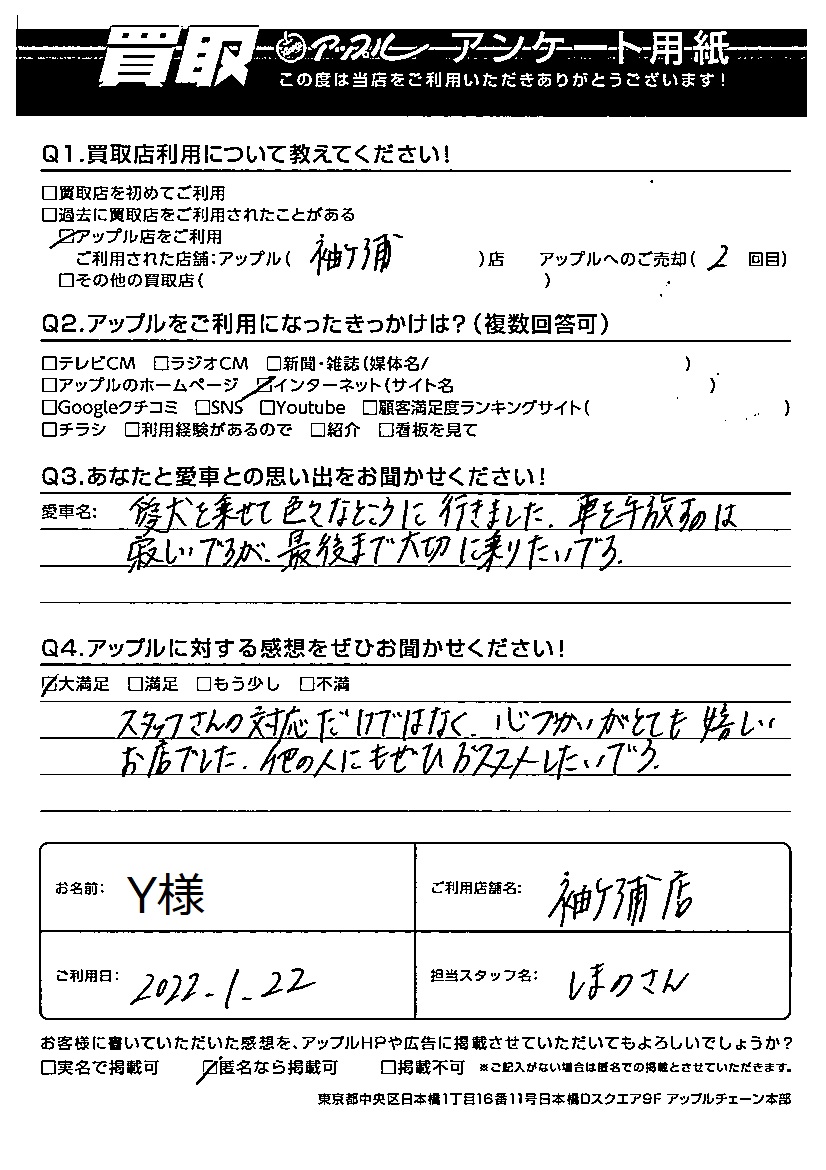 買取 アップル アンケート用紙
この度は当店をご利用いただきありがとうございます!
Q1.買取店利用について教えてください!
□買取店を初めてご利用
□過去に買取店をご利用されたことがある
☑アップル店をご利用
ご利用された店舗:アップル( 袖ケ浦 )店 アップルへのご売却( 2 回目)
□その他の買取店( )
Q2.アップルをご利用になったきっかけは?(複数回答可)
□テレビCM □ラジオCM □新聞・雑誌(媒体名/ )
□アップルのホームページ ☑インターネット(サイト名 )
□Googleクチコミ □SNS □Youtube □顧客満足度ランキングサイト( )
□チラシ □利用経験があるので □紹介 □看板を見て
Q3.あなたと愛車との思い出をお聞かせください!
愛車名: 愛犬を乗せて色々なところに行きました。車を手放すのは
寂しいですが、最後まで大切に乗りたいです。
Q4.アップルに対する感想をぜひお聞かせください!
☑大満足 □満足 □もう少し □不満
スタッフさんの対応だけではなく、心づかいがとても嬉しい
お店でした。他の人にもぜひおススメしたいです。
お名前: Y様 ご利用店舗名: 袖ケ浦店
ご利用日: 2022.1.22 担当スタッフ名: しまのさん
お客様に書いていただいた感想を、アップルHPや広告に掲載させていただいてもよろしいでしょうか?
□実名で掲載可 ☑匿名なら掲載可 □掲載不可 ※ご記入がない場合は匿名での掲載とさせていただきます。
東京都中央区日本橋1丁目16番11号日本橋Dスクエア9F アップルチェーン本部